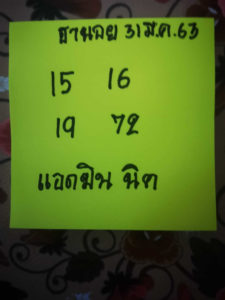 ฐานลอย 31 มี.ค.63
15 16
19 72
แอดมิน นิค